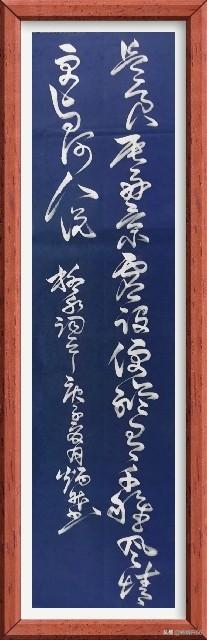 是良辰好景虚设便纵有千种风情
更与何人说
柳永词 庚子夏月炳
头条